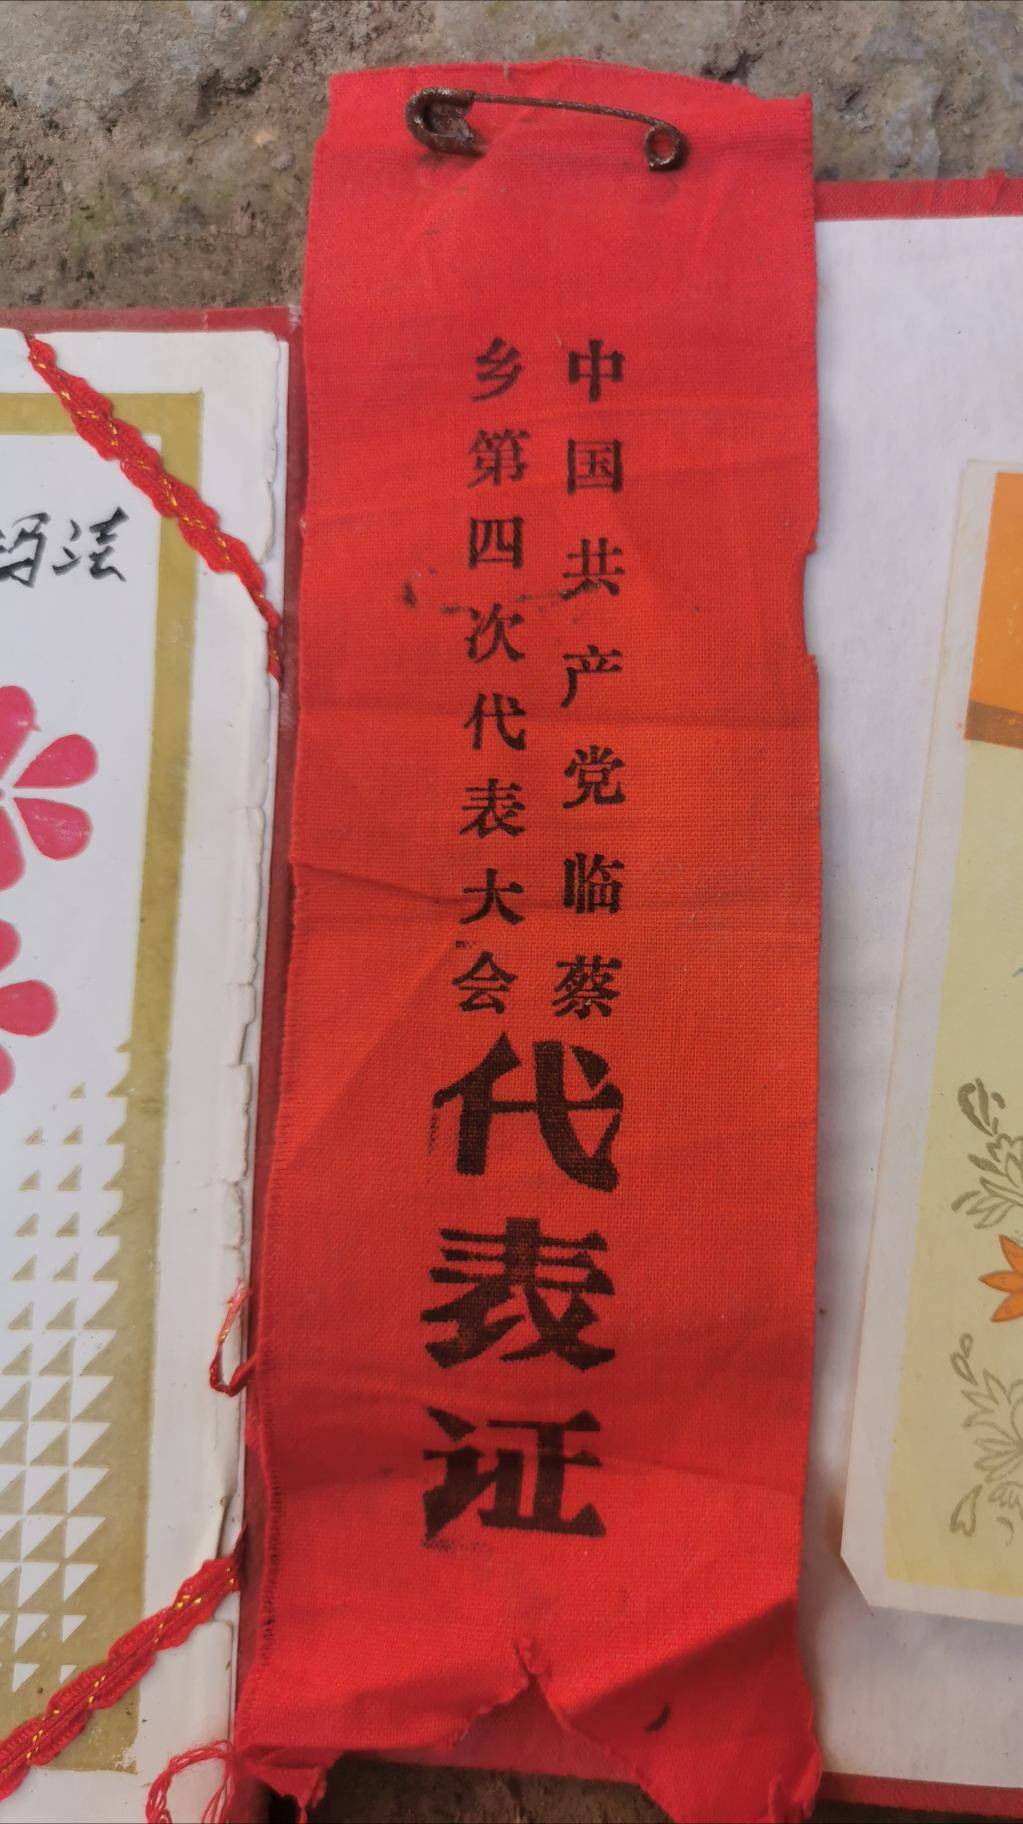 中国共产党临蔡
乡第四次代表大会
代表证